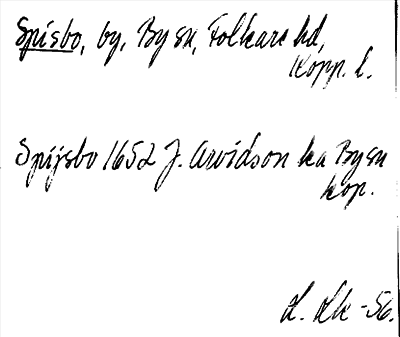 Spisbo, by, By sn, Folkare hd,
Kopp. l.
Spijsbo 1652 J. Arvidson ka By sn
kop.